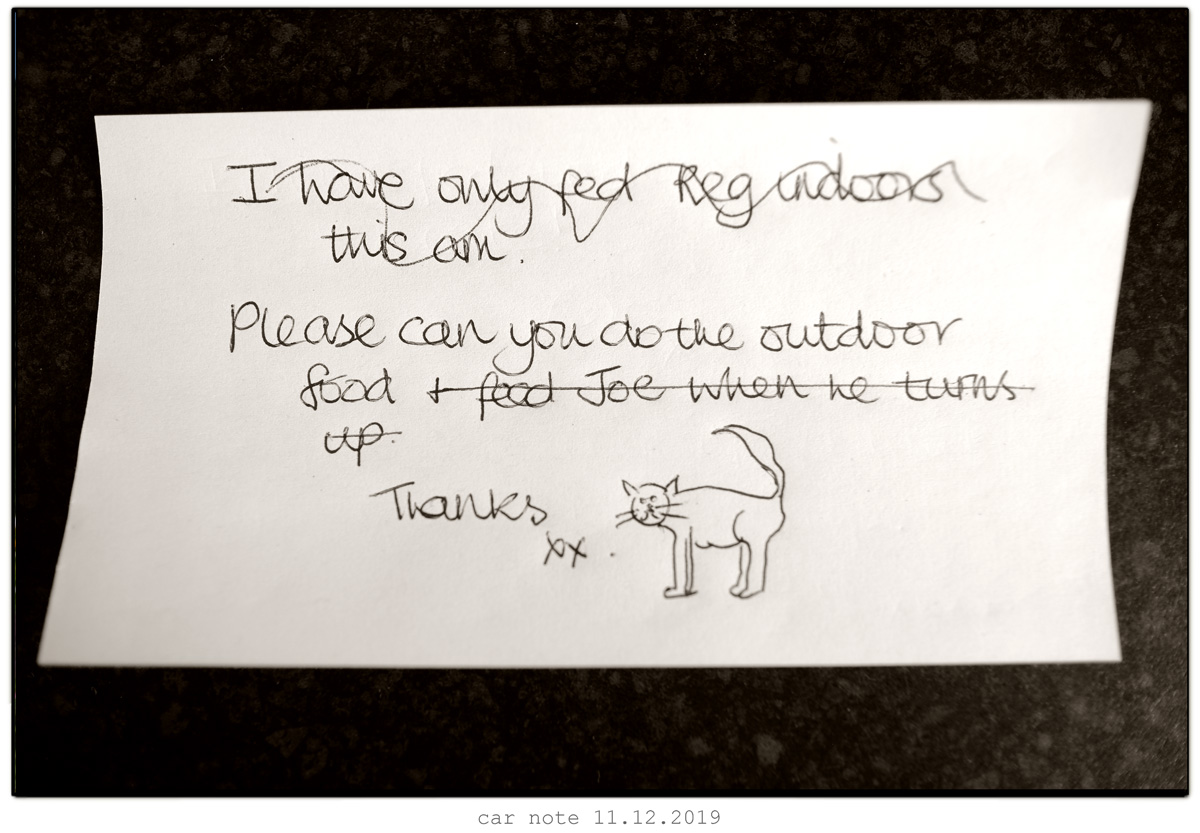 I have only fed Reg indoors
this am.
Please can you do the outdoor
food + feed Joe when he turns
up.
Thanks
xx.
car note 11.12.2019